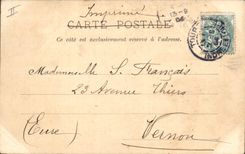 II
Imprimé
CARTE POSTALE
Ce côté est exclusivement réservé à l'adresse.
Mademoiselle S. Français
23 Avenue Thiers
Vernon
(Eure)